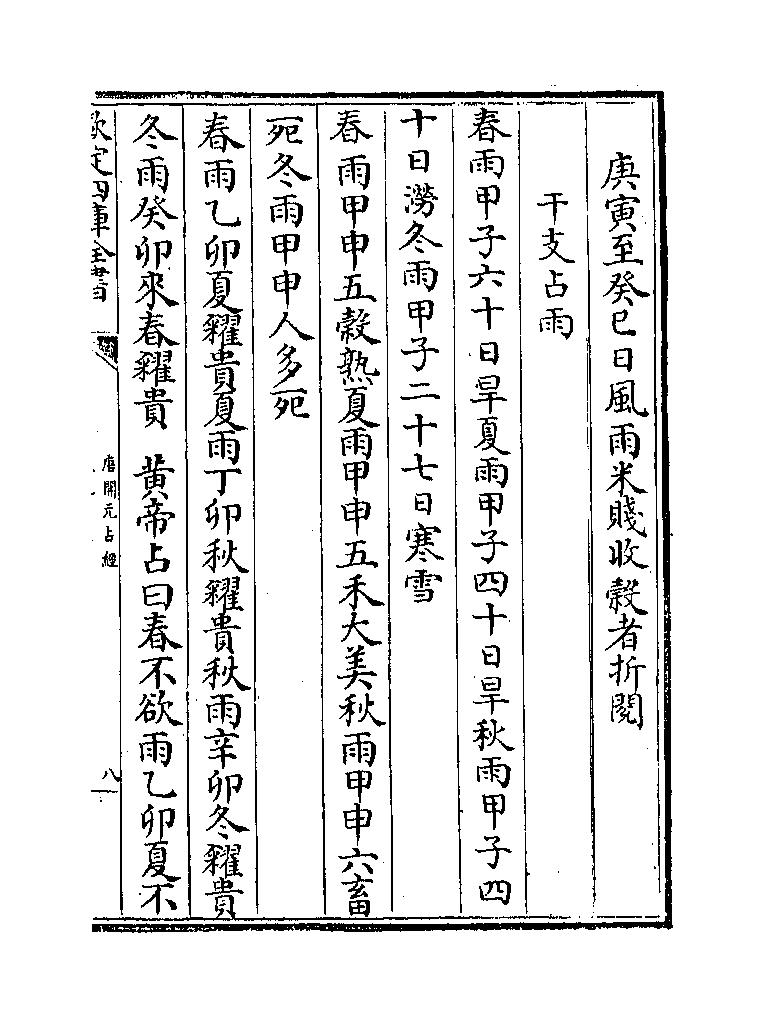 庚寅至癸巳日風雨米賤收穀者折閱
干支占雨
春雨甲子六十日旱夏雨甲子四十日旱秋雨甲子四
十日澇冬雨甲子二十七日寒雪
春雨甲申五穀熟夏雨甲申五禾大美秋雨甲申六畜
死冬雨甲申人多死
春雨乙卯夏糴貴夏雨丁卯秋糴貴秋雨辛卯冬糴貴
冬雨癸卯來春糴貴　黄帝占曰春不欲雨乙卯夏不
欽定四庫全書
唐開元占經
八